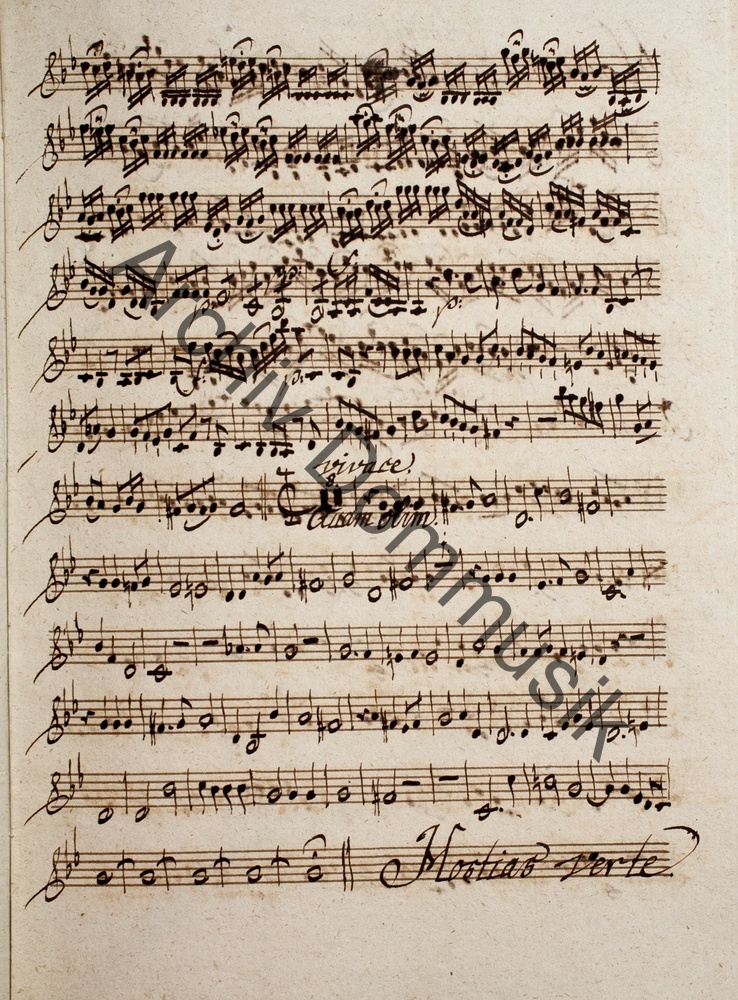 vivace.
8
Quam olim.
Hostias verte
Archiv Dommusik